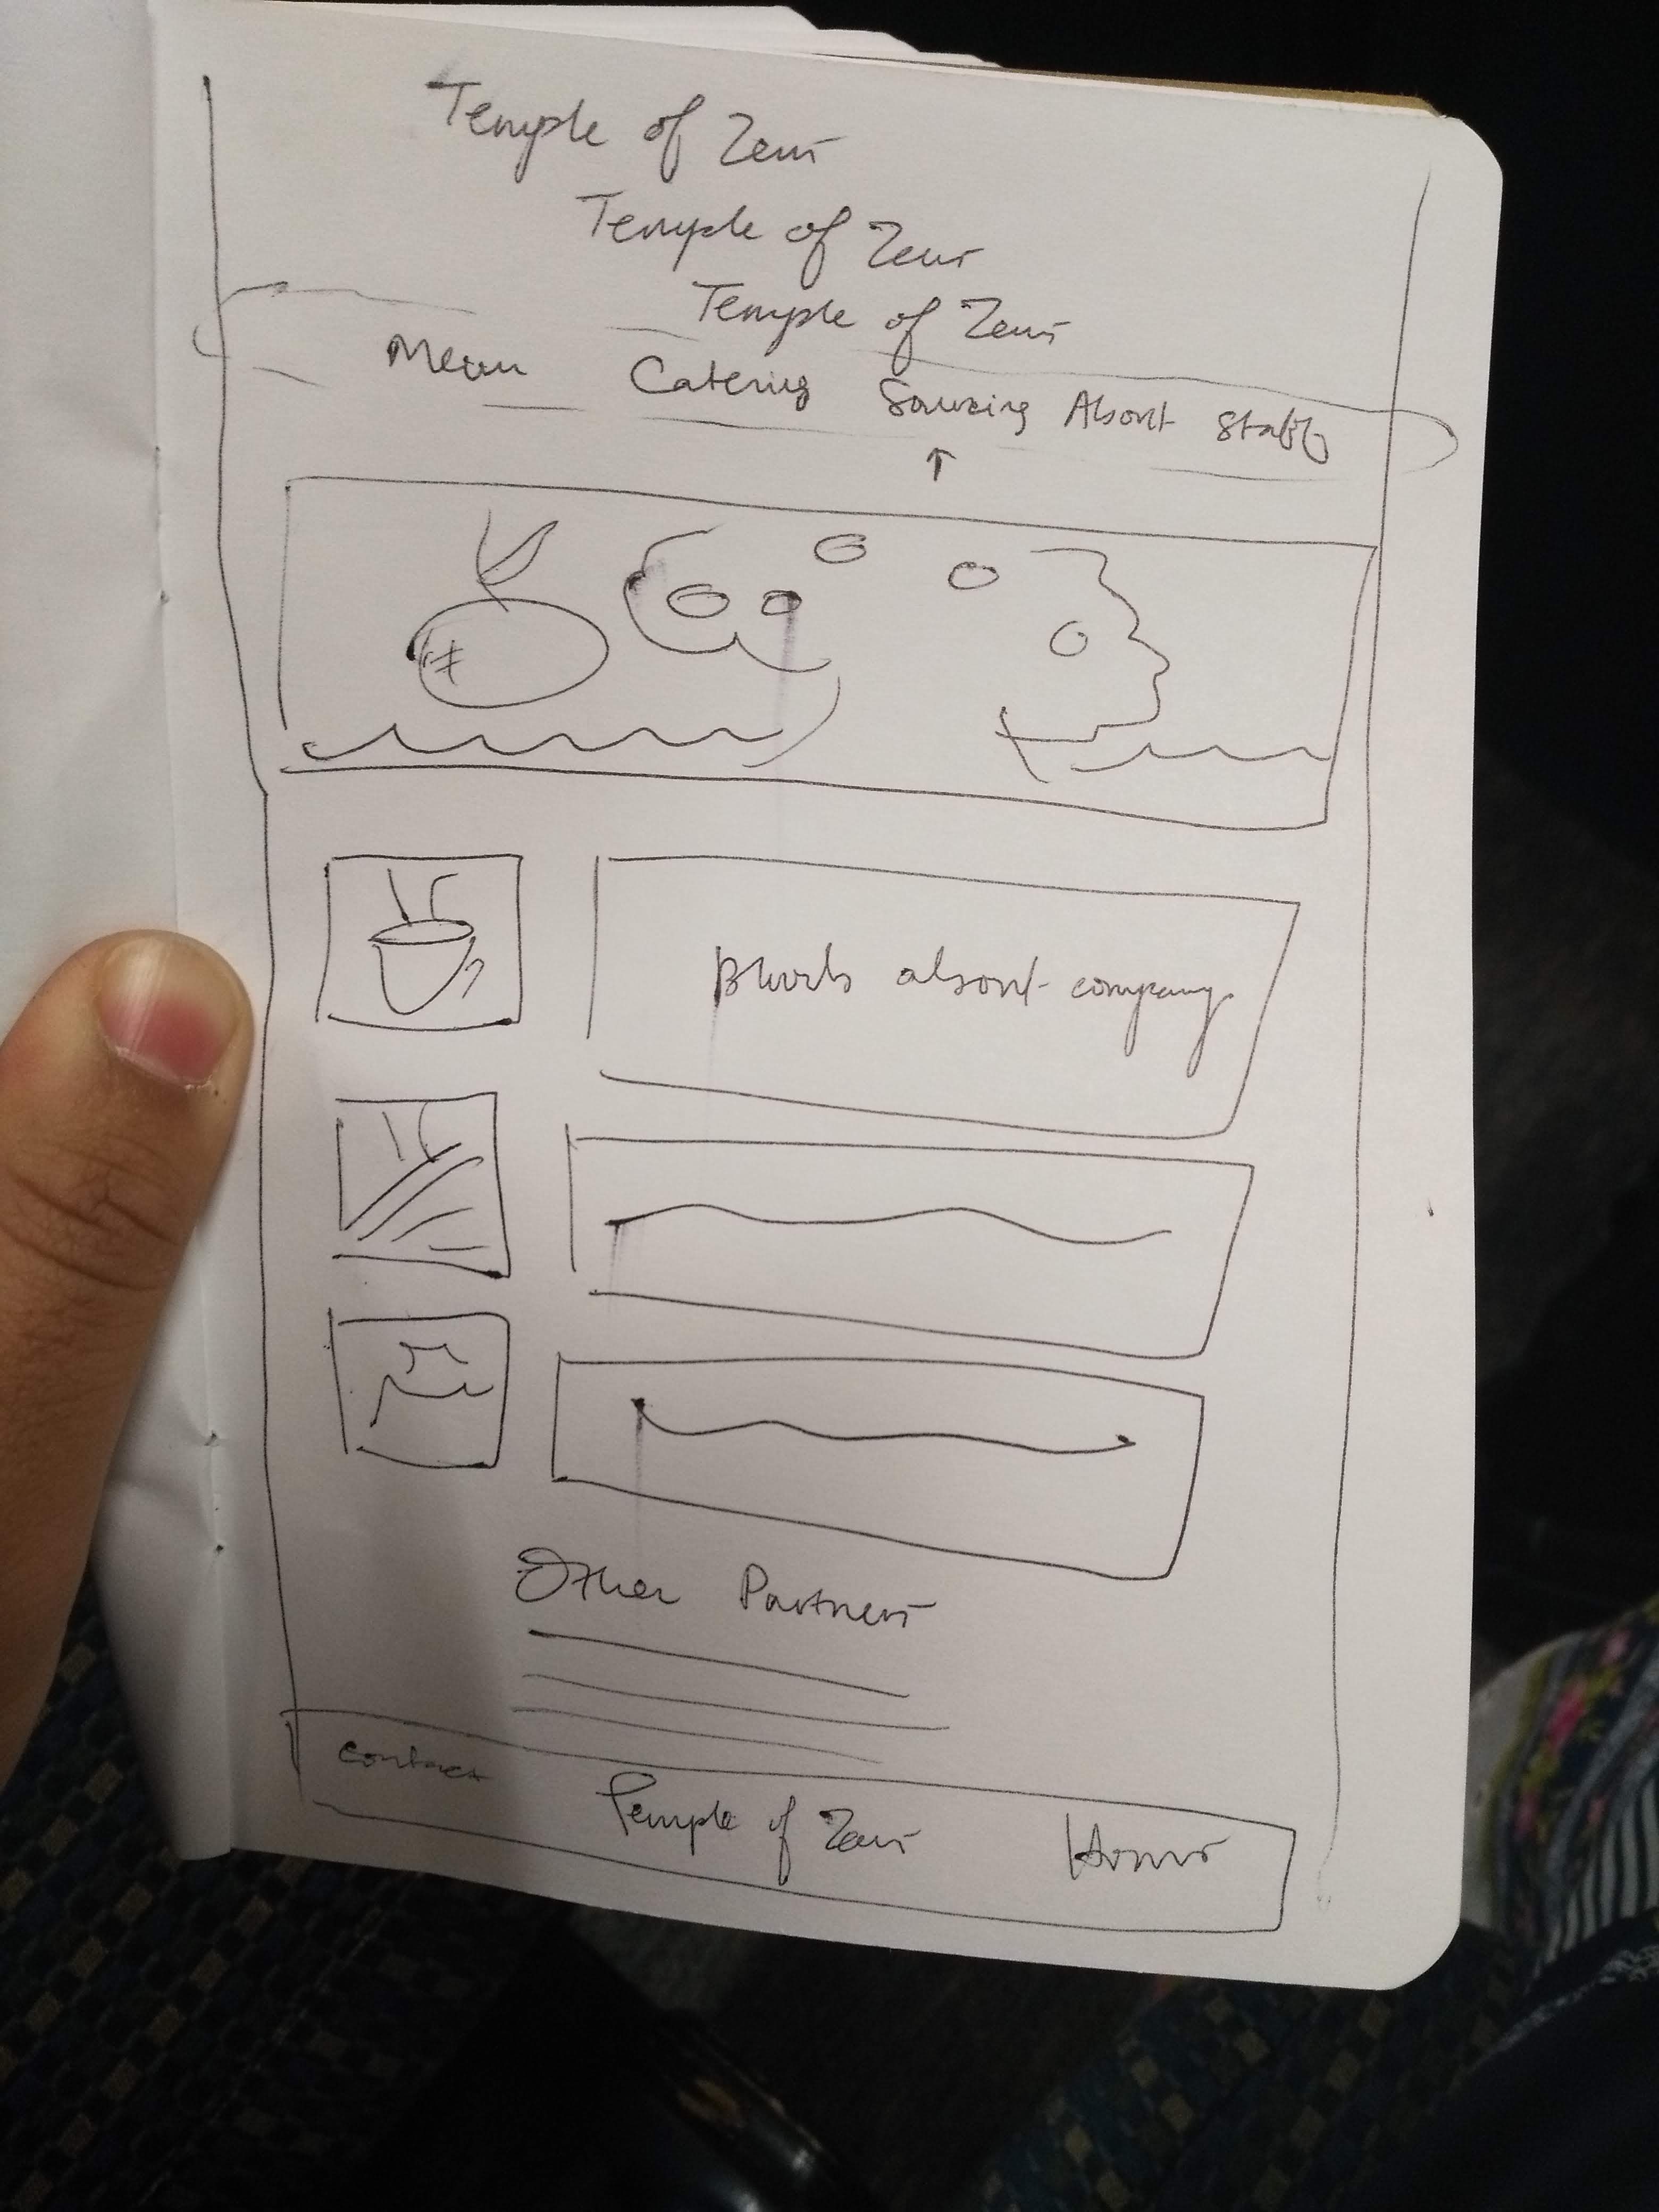 Temple of Zeus
Temple of Zeus
Temple of Zeus
Menu Catering Sourcing About Staff
Blurb about company
Other Partners
contact Temple of Zeus Hours